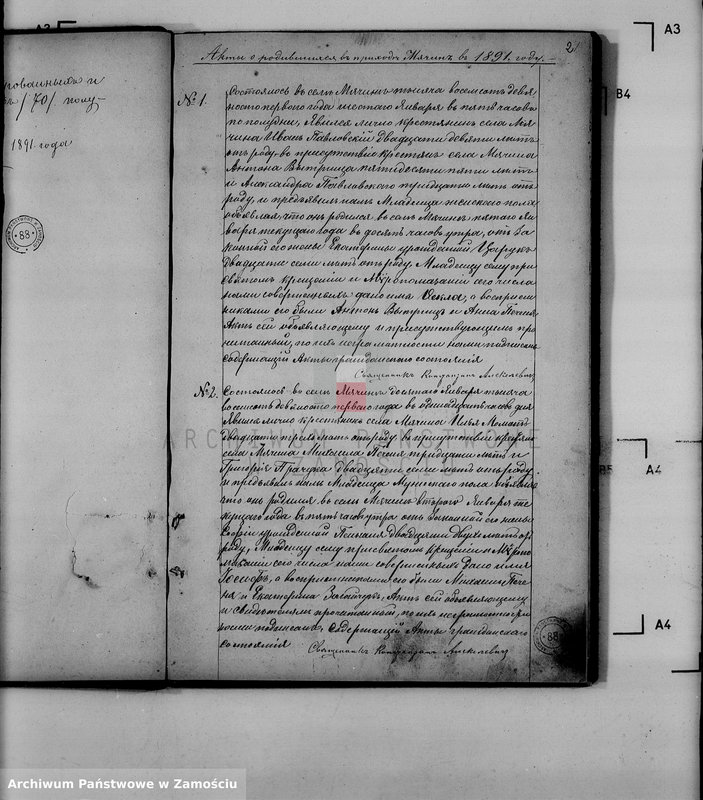 2
Акты о родившихся въ приходѣ Мячинъ въ 1891 году.
/70/
1891 года
№ 1.
Состоялось въ селѣ Мячинѣ тысяча восемсотъ девя
носто перваго года шестаго Января въ пять часовъ
по полудни, Явился лично крестьянинъ села Мя
чина Иванъ Павловскій двадцати девяти лѣтъ
отъ роду, въ присутствіи крестьянъ села Мячина
Антона пятидесяти пяти лѣтъ
и Александра Павловскаго тридцати лѣтъ отъ
роду, и предъявилъ намъ Младенца женскаго пола
объявляя, что онъ родился въ селѣ Мячинѣ пятаго Ян
варя текущаго года въ десять часовъ утра, отъ за
конной его жены Екатерины урожденной
двадцати семи лѣтъ отъ роду, Младенцу сему при
святомъ крещеніи и Мѵропомазаніи его числа
нами совершенныхъ дано имя Ѳекла, а восприем
никами его были Антонъ и Анна
Актъ сей объявляющему и присутствующимъ про
читанный, по ихъ неграмотности нами подписанъ
содержащій Акты гражданскаго состоянія
Священникъ
№ 2.
Состоялось въ селѣ Мячинѣ Января тысяча
восемсотъ девяносто перваго года въ одинадцать часовъ дня
Явился лично крестьянинъ села Мячина Илья
двадцати трехъ лѣтъ отъ роду въ присутствіи крестьянъ
села Мячина Михаила тридцати лѣтъ и
Григорія двадцати семи лѣтъ отъ роду
и предъявилъ намъ Младенца Мужскаго пола объявляя
что онъ родился въ селѣ Мячинѣ втораго Января те
кущаго года въ пять часовъ утра отъ Законной его жены
Софіи урожденной двадцати двухъ лѣтъ отъ
роду, Младенцу сему при святомъ крещеніи и Мѵропо
мазаніи его числа нами совершенныхъ дано имя
Іосифъ, а восприемниками его были Михаилъ
и Екатерина Актъ сей объявляющему
и Свидѣтелямъ прочитанный, по ихъ неграмотности
нами подписанъ, Содержащій Акты гражданскаго
состоянія
Священникъ
88
88
A3
B4
A4
B5
A4
ARCHIWUM PAŃSTWOWE
Archiwum Państwowe w Zamościu